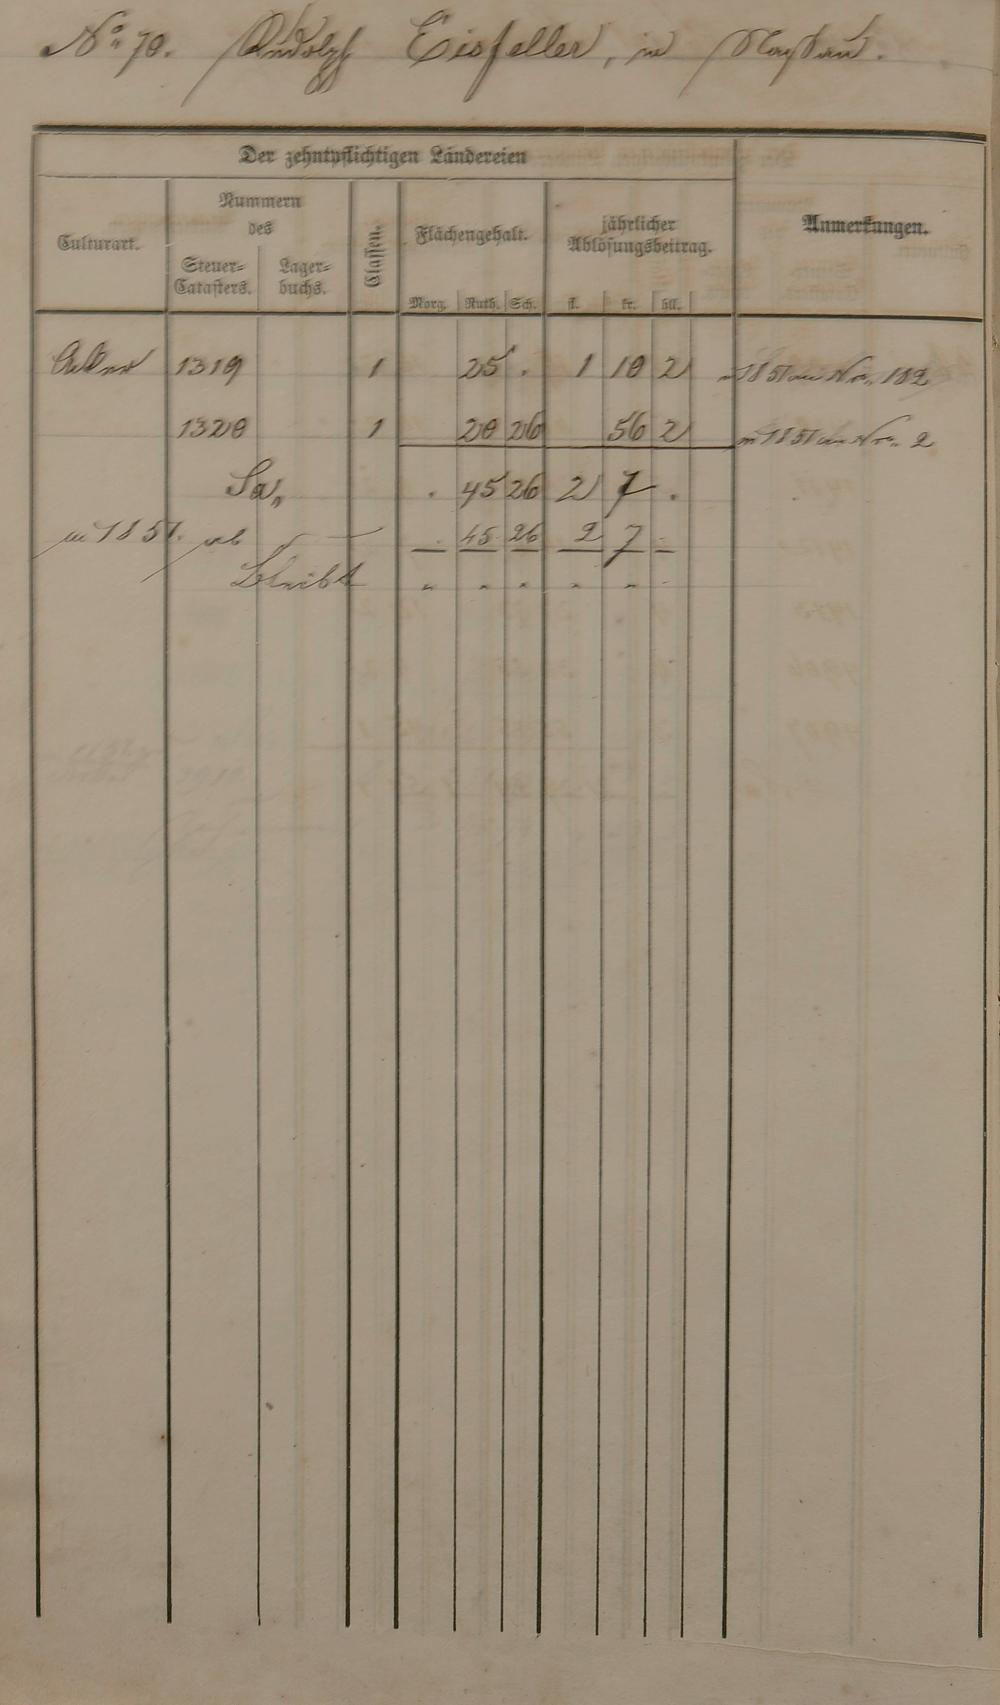 No. 70. Rudolph Eisfeller, in Nassau.
Der zehntpflichtigen Ländereien
Anmerkungen.
Culturart.
Nummern des
Steuer-Catasters.
Lager-buchs.
Classen.
Flächengehalt.
jährlicher Ablösungsbeitrag.
Morg. Ruth. Sch. fl. kr. hll.
Acker 1319 1 25 . 1 10 2 in 1851 an Nro. 182
1320 1 20 26 56 2 in 1851 an Nro. 2
Sa. . 45 26 2 7 .
in 1851. ab . 45 26 2 7 -
Bleibt " " " " "